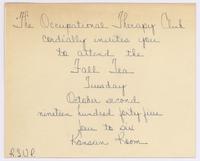 The Occupational Therapy Club
cordially invites you
to attend the
Fall Tea
Tuesday
October second
nineteen hundred forty-five
four to six
Kansan Room
R.S.V.P.